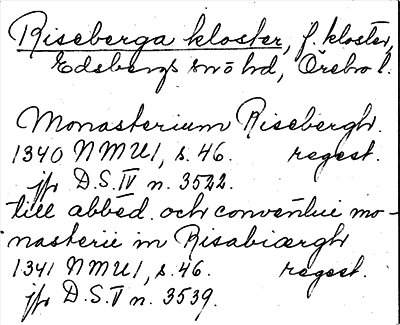 Riseberga kloster, f. kloster,
Edsbergs snö hd, Örebro l.
Monasterium Risebergh.
1340 NMU1, s. 46. regest.
jfr D.S. IV n. 3522.
till abbed. och conventui mo-
nasterii in Risabiærgh
1341 NMU1, s. 46. regest.
jfr D.S. V n. 3539.